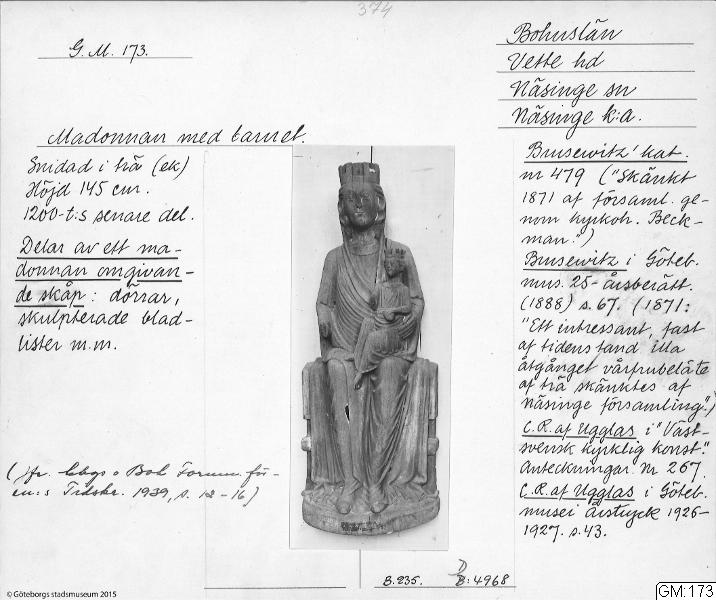 374
G.M. 173.
Bohuslän
Vette hd
Näsinge sn
Näsinge k:a.
Madonnan med barnet.
Snidad i trä (ek)
Höjd 145 cm.
1200-t:s senare del.
Delar av ett ma-
donnan omgivan-
de skåp: dörrar,
skulpterade blad-
lister m.m.
(Jfr. Gbgs o Boh. Fornm. för-
en:s Tidskr. 1939, s. 12-16)
Brusewitz' kat.
nr 479 ("Skänkt
1871 af församl. ge-
nom kyrkoh. Beck-
man.")
Brusewitz i Göteb.
mus. 25-årsberätt.
(1888) s. 67. (1871:
"Ett intressant, fast
af tidens tand illa
åtgånget vårfrubeläte
af trä skänktes af
Näsinge församling.")
C.R. af Ugglas i "Väst-
svensk kyrklig konst."
Anteckningar. Nr 267.
C.R. af Ugglas i Göteb.
musei Årstryck 1926-
1927. s. 43.
B.235.
D
B:4968
© Göteborgs stadsmuseum 2015
GM:173